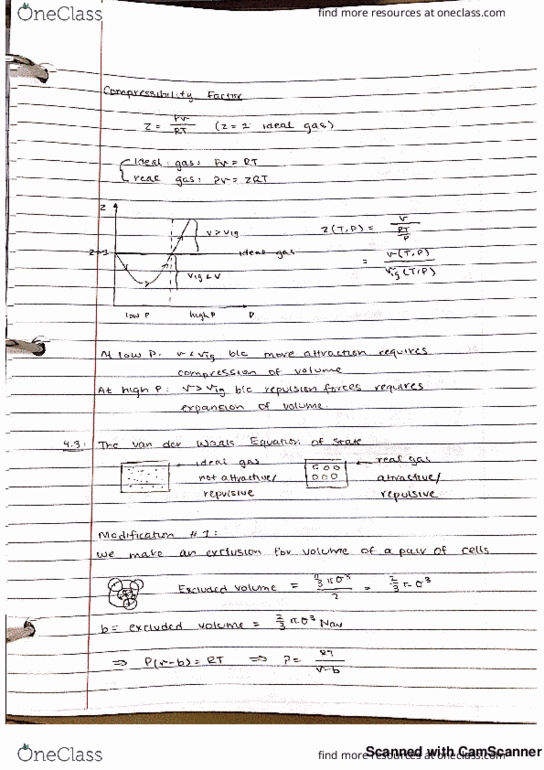 OneClass
find more resources at oneclass.com
Compressibility Factor
Z = Pv/RT (Z=1 ideal gas)
ideal gas: Pv = RT
real gas: Pv = ZRT
Z
V > Vig
Z=1
ideal gas
Vig < V
low P high P P
Z(T,P) = v/(RT/P)
= v(T,P)/vig(T,P)
At low P: v < vig b/c more attraction requires
compression of volume
At high P: v > vig b/c repulsion forces requires
expansion of volume.
4.3: The van der Waals Equation of State
ideal gas
not attractive/
repulsive
real gas
attractive/
repulsive
Modification #1:
We make an exclusion for volume of a pair of cells
Excluded volume = 4/3 πσ³/2 = 2/3 πσ³
b = excluded volume = 2/3 πσ³ Nav
⇒ P(v-b) = RT ⇒ P = RT/v-b
OneClass
find more resources at oneclass.com
Scanned with CamScanner